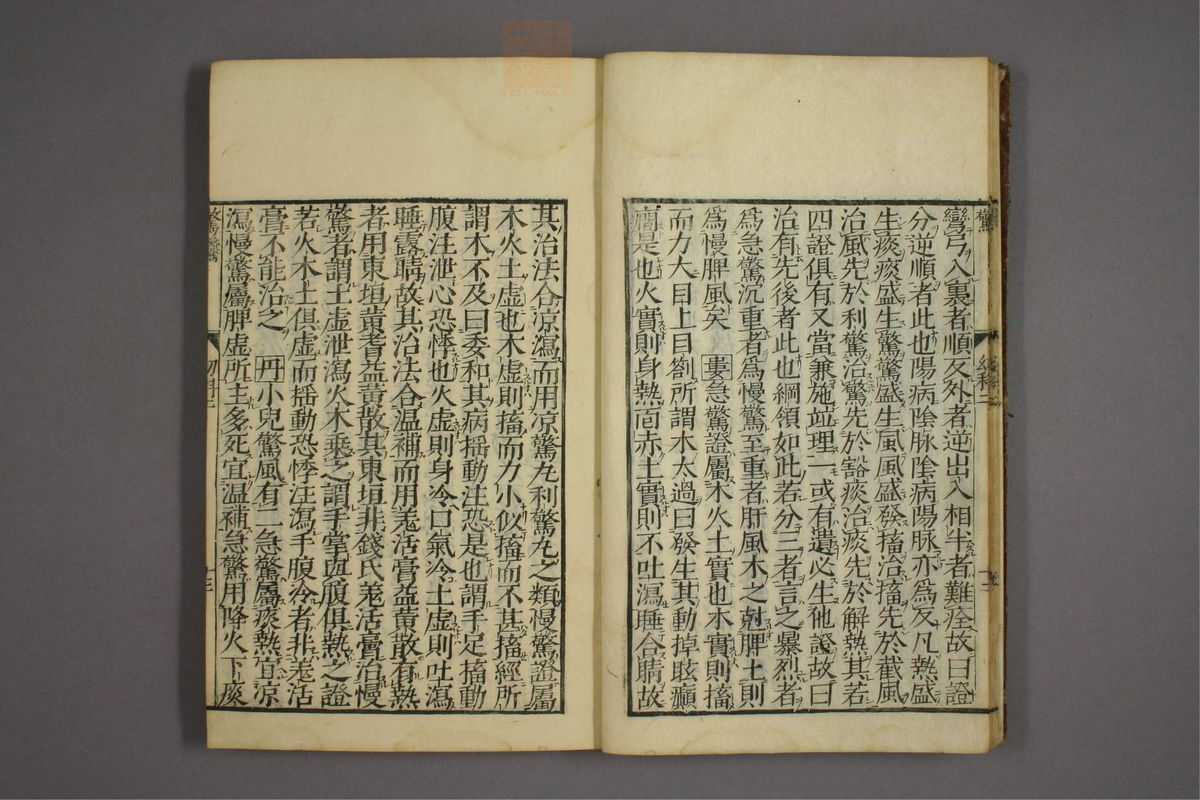 彎弓入裏者順反外者逆出入相半者難痊故曰證
分逆順者此也陽病陰脉陰病陽脉亦爲反凡熱盛
生痰痰盛生驚驚盛生風風盛發搐治搐先於截風
治風先於利驚治驚先於豁痰治痰先於解熱其若
四證俱有又當兼施竝理一或有遺必生他證故曰
治有先後者此也綱領如此若分三者言之暴烈者
爲急驚沉重者爲慢驚至重者肝風木之尅脾土則
爲慢脾風矣 婁急驚證屬木火土實也木實則搐
而力大目上目劄所謂木太過曰發生其動掉眩癲
疾是也火實則身熱面赤土實則不吐瀉睡合睛故
其治法合凉瀉而用凉驚丸利驚丸之類慢驚證屬
木火土虛也木虛則搐而力小似搐而不甚搐經所
謂木不及曰委和其病揺動注恐是也謂手足搐動
腹注泄心恐悸也火虛則身冷口氣冷土虛則吐瀉
睡露睛故其治法合温補而用羌活膏益黄散有熱
者用東垣黄耆益黄散其東垣非錢氏羌活膏治慢
驚者謂土虛泄瀉火木乘之謂手掌與腹俱熱之證
若火木土俱虛而揺動恐悸注瀉手腹冷者非羌活
膏不能治之 丹小兒驚風有二急驚屬痰熱宜凉
瀉慢驚屬脾虛所主多死宜温補急驚用降火下痰